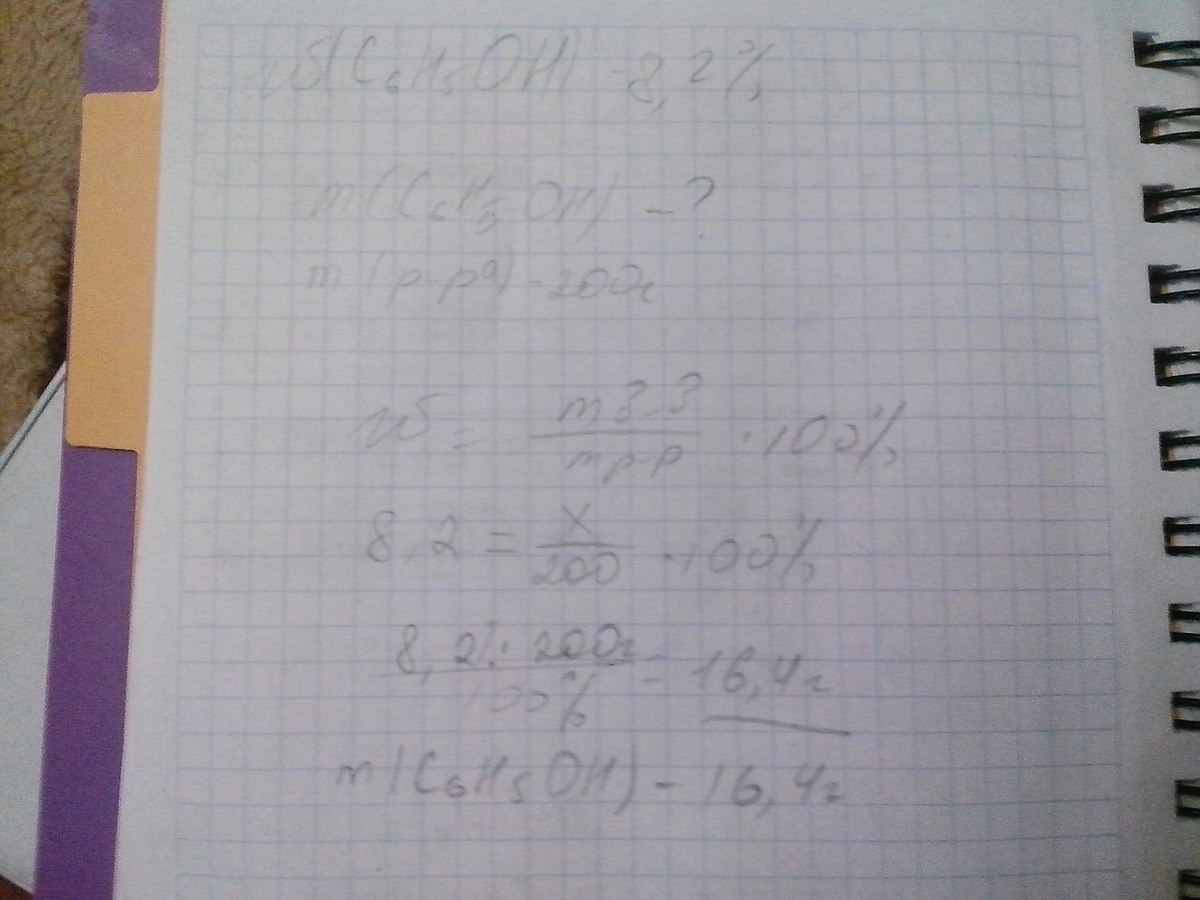 ω(C₆H₅OH) - 8,2%
m(C₆H₅OH) - ?
m(р-ра) - 200г
ω = m в-в / m р-р · 100%
8,2 = x / 200 · 100%
8,2% · 200г / 100% = 16,4г
m(C₆H₅OH) - 16,4г